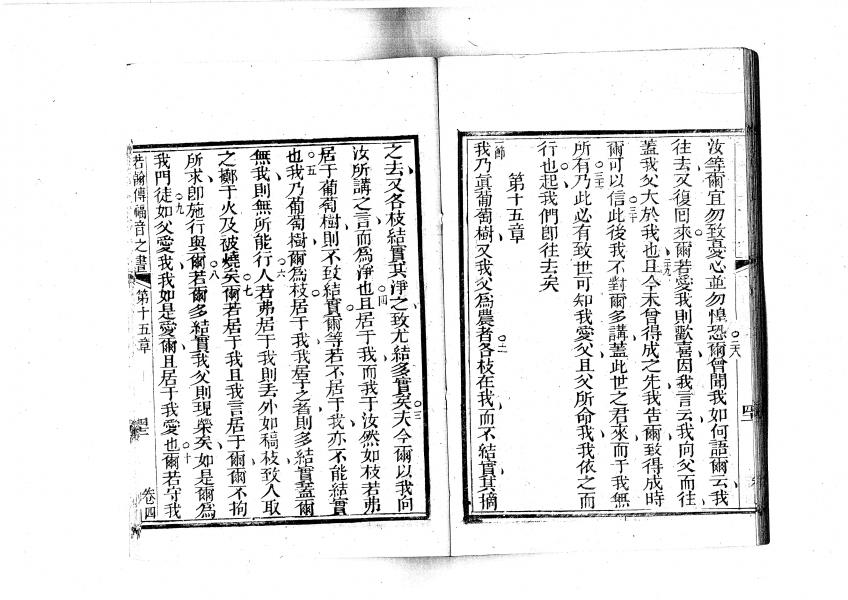 汝等爾宜勿致憂心並勿惶恐爾曾聞我如何語爾云我
二八
往去又復回來爾若愛我則歡喜因我言云我向父而往
蓋我父大於我也且今未曾得成之先我告爾致得成時
二九
爾可以信此後我不對爾多講蓋此世之君來而于我無
三十
所有乃此必有致世可知我愛父且父所命我我依之而
三一
行也起我們即往去矣
第十五章
節
我乃真葡萄樹又我父為農者各枝在我而不結實其摘
二
之去又各枝結實其淨之致尤結多實矣夫今爾以我向
三
汝所講之言而為淨也且居于我而我于汝然如枝若弗
四
居于葡萄樹則不致結實爾等若不居于我亦不能結實
也我乃葡萄樹爾為枝居于我我居于之者則多結實蓋爾
五
無我則無所能行人若弗居于我則丟外如稿枝致人取
六
之擲于火及被燒矣爾若居于我且我言居于爾爾不拘
七
所求即施行與爾若爾多結實我父則現榮矣如是爾為
八
我門徒如父愛我我如是愛爾且居于我愛也爾若守我
九
十
若翰傳福音之書
第十五章
卷四